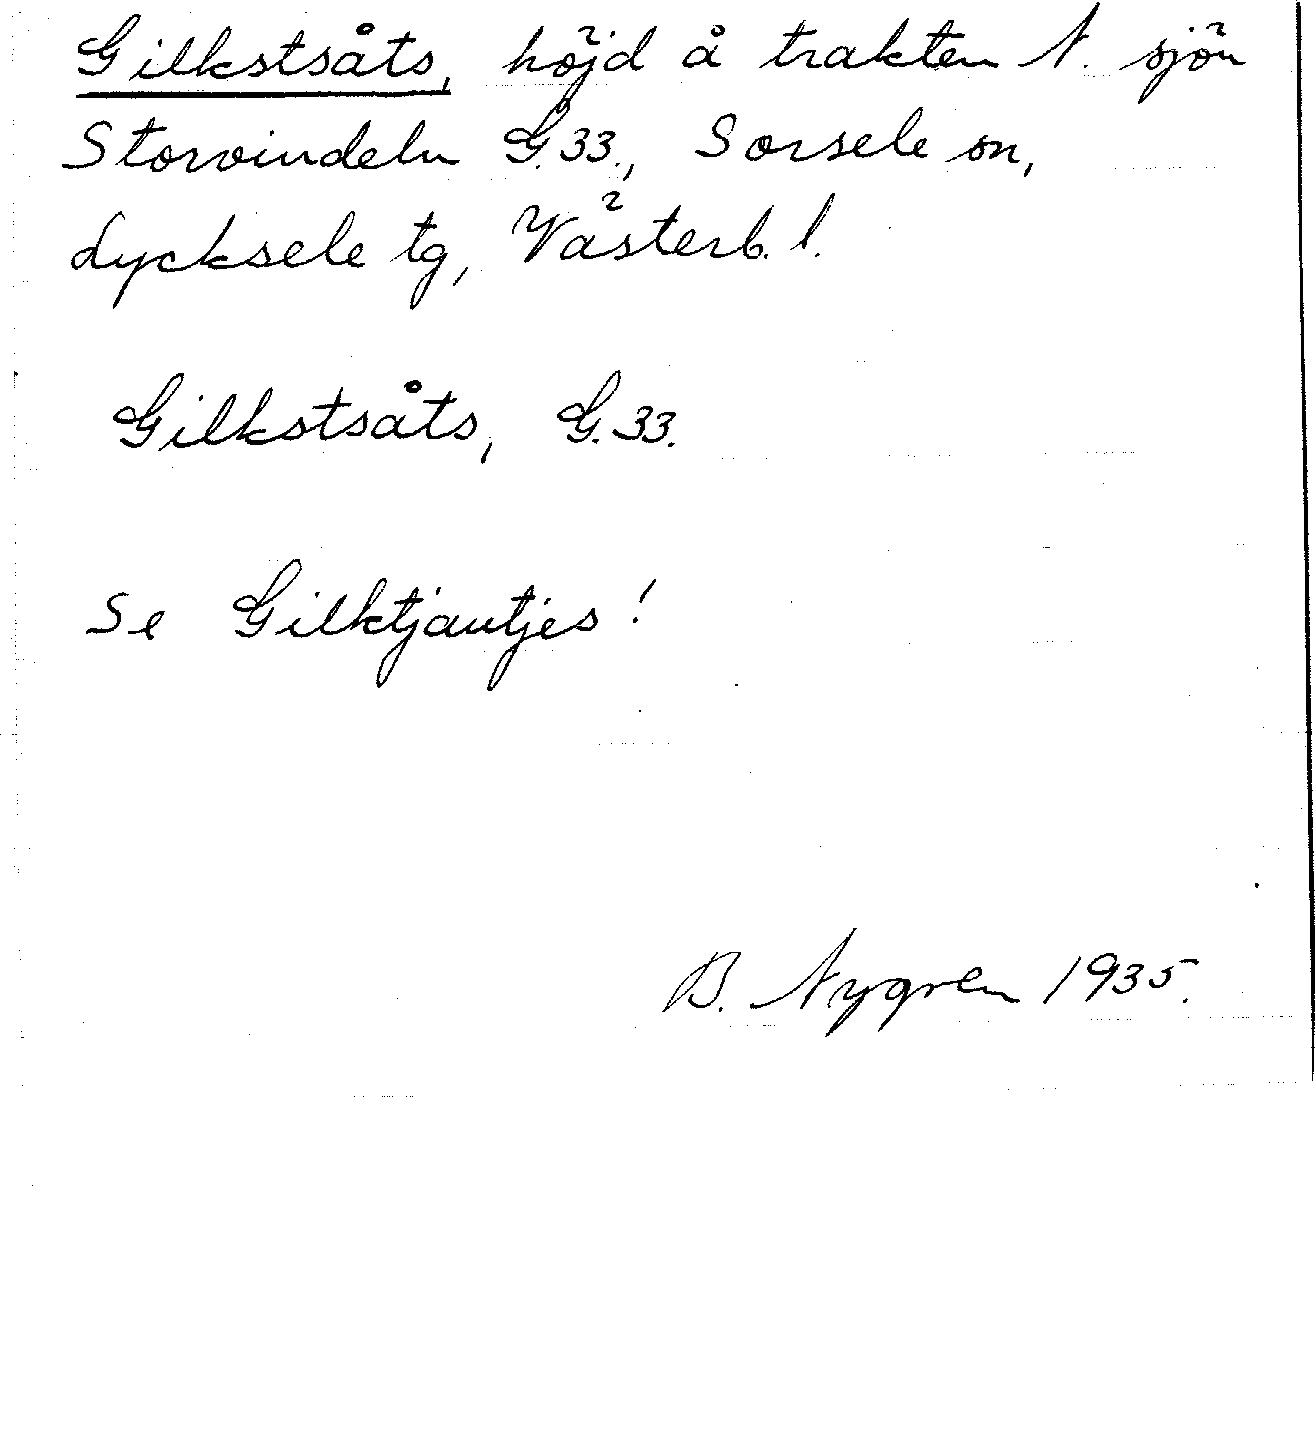 Gilkstsåts, höjd å trakten N. sjön
Storvindeln G.33., Sorsele sn,
Lycksele tg, Västerb. l.
Gilkstsåts, G.33.
Se Gilktjautjes!
B. Nygren 1935.